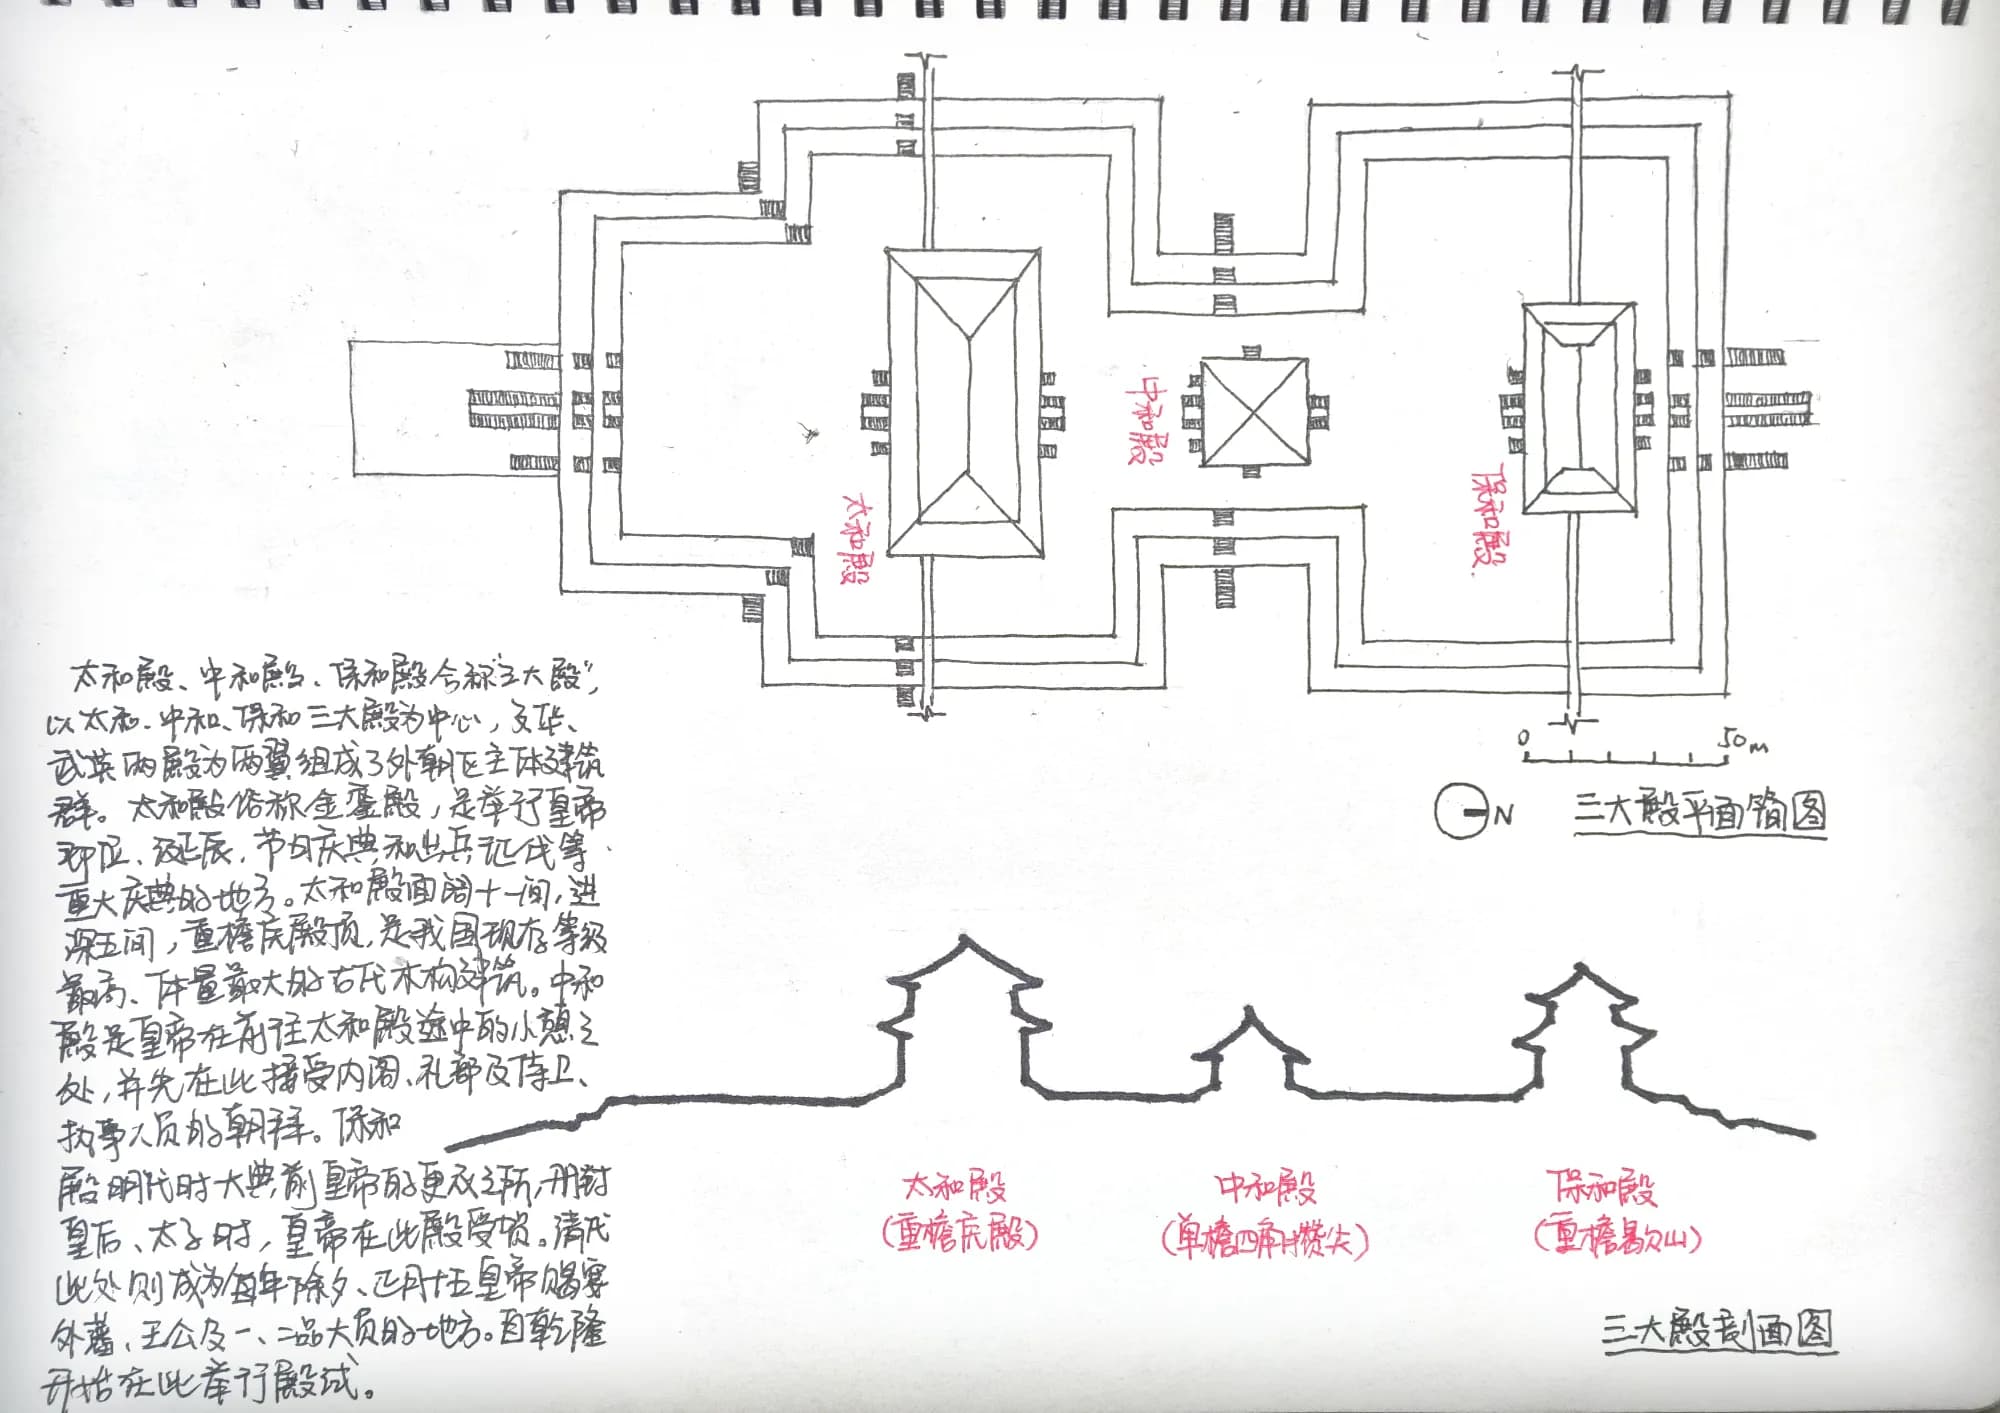 太和殿
中和殿
保和殿
0 50m
N
三大殿平面简图
太和殿、中和殿、保和殿合称"三大殿",
以太和、中和、保和三大殿为中心,文华、
武英两殿为两翼组成了外朝区主体建筑
群。太和殿俗称金銮殿,是举行皇帝
即位、诞辰、节日庆典和出兵征伐等
重大庆典的地方。太和殿面阔十一间,进
深五间,重檐庑殿顶,是我国现存等级
最高、体量最大的古代木构建筑。中和
殿是皇帝在前往太和殿途中的小憩之
处,并先在此接受内阁、礼部及侍卫、
执事人员的朝拜。保和
殿明代时大典前皇帝的更衣之所,册封
皇后、太子时,皇帝在此殿受贺。清代
此处则成为每年除夕、正月十五皇帝赐宴
外藩、王公及一、二品大员的地方。自乾隆
开始在此举行殿试。
太和殿
(重檐庑殿)
中和殿
(单檐四角攒尖)
保和殿
(重檐歇山)
三大殿剖面图